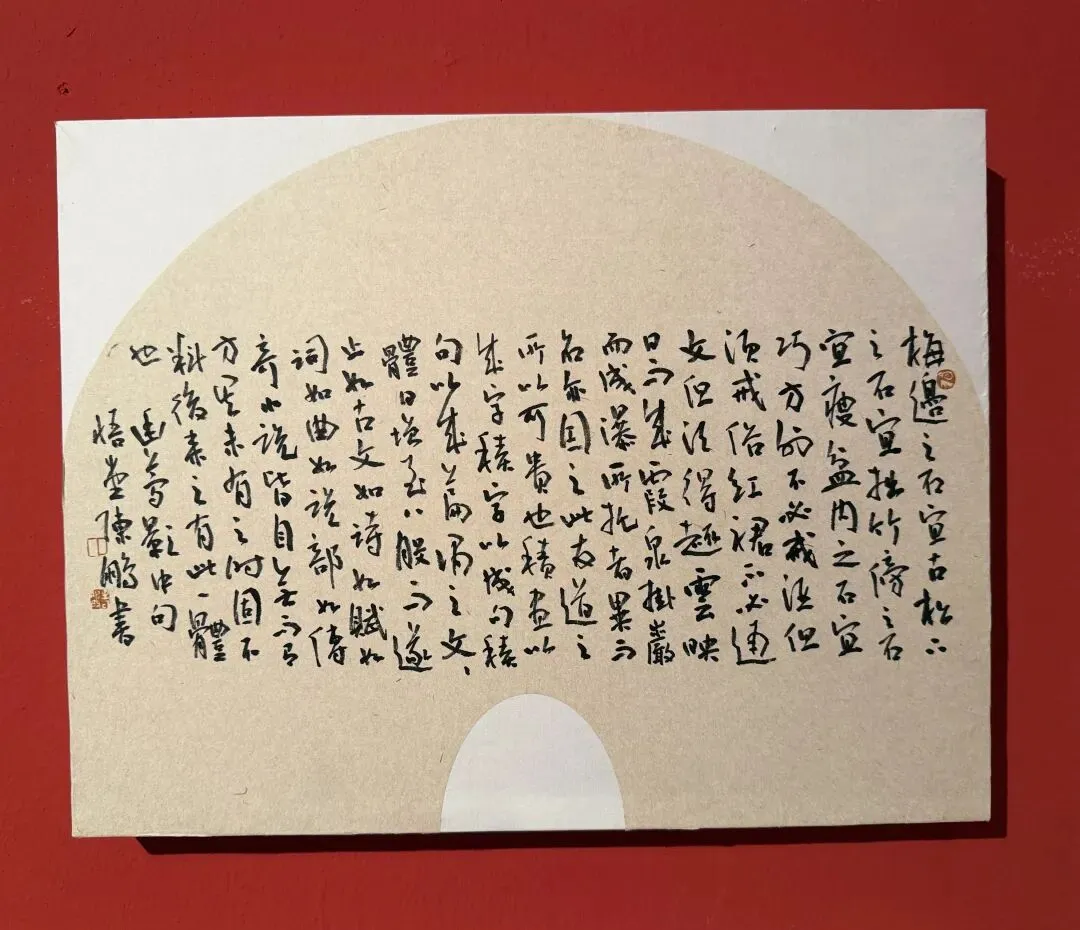 梅邊之石宜古松下
之石宜拙竹傍之石
宜瘦盆內之石宜
巧方外不必戒酒但
須戒俗紅裙不必通
文但須得趣雲映
日而成霞泉掛巖
而成瀑所托者異而
名亦因之此友道之
所以可貴也積畫以
成字積字以成句積
句以成篇謂之文、
體日增至八股而遂
止如古文如詩如賦如
詞如曲如說部如傳
奇小說皆自無而有
方其未有之時固不
料後來之有此一體
也 幽夢影中句
悟堂陳鵬書